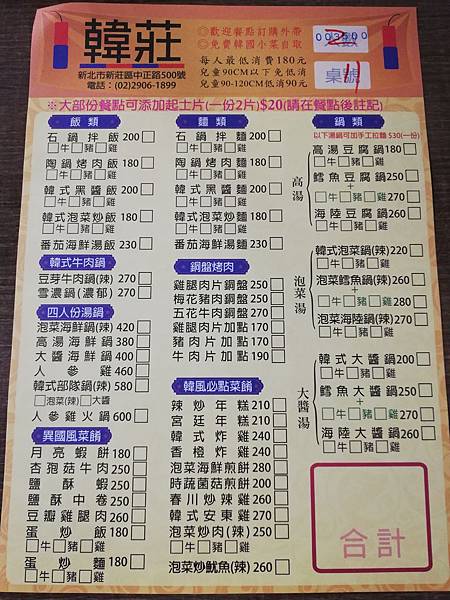 韓莊
新北市新莊區中正路500號
電話：(02)2906-1899
◎歡迎餐點訂購外帶
◎免費韓國小菜自取
每人最低消費180元
兒童90CM以下免低消
兒童90-120低消90元
桌號
11
※大部份餐點可添加起士片(一份2片)$20(請在餐點後註記)
飯類
石鍋拌飯200□
□牛□豬□雞
陶鍋烤肉飯180□
□牛□豬□雞
韓式黑醬飯200□
□牛□豬□雞
韓式泡菜炒飯180□
□牛□豬□雞
番茄海鮮湯飯230□
韓式牛肉鍋
豆芽牛肉鍋(辣)270□
雪濃鍋(濃郁)270□
四人份湯鍋
泡菜海鮮鍋(辣)420□
高湯海鮮鍋380□
大醬海鮮鍋400□
人參雞460□
韓式部隊鍋(辣)580□
□泡菜(辣)□大醬
人參雞火鍋600□
異國風菜餚
月亮蝦餅180□
杏孢菇牛肉250□
鹽酥蝦250□
鹽酥中卷250□
豆瓣雞腿肉260□
蛋炒飯180□
□牛□豬□雞
蛋炒麵180□
□牛□豬□雞
麵類
石鍋拌麵200□
□牛□豬□雞
陶鍋烤肉麵180□
□牛□豬□雞
韓式黑醬麵200□
□牛□豬□雞
韓式泡菜炒麵180□
□牛□豬□雞
番茄海鮮湯麵230□
銅盤烤肉
雞腿肉片銅盤250□
梅花豬肉銅盤250□
五花牛肉銅盤270□
雞腿肉片加點170□
豬肉片加點170□
牛肉片加點190□
韓風必點菜餚
辣炒年糕210□
宮廷年糕210□
韓式炸雞240□
香橙炸雞240□
泡菜海鮮煎餅280□
時蔬菌菇煎餅250□
春川炒辣雞260□
韓式安東雞270□
泡菜炒肉(辣)250□
□牛□豬□雞
泡菜炒魷魚(辣)260□
鍋類
以下湯鍋可加手工拉麵$30(一份)
高湯
高湯豆腐鍋180□
□牛□豬□雞
鱈魚豆腐鍋250□
+
□牛□豬□雞270□
海陸豆腐鍋260□
□牛□豬□雞
泡菜湯
韓式泡菜鍋(辣)220□
□牛□豬□雞
泡菜鱈魚鍋(辣)260□
+
□牛□豬□雞280□
泡菜海陸鍋(辣)270□
□牛□豬□雞
大醬湯
韓式大醬鍋200□
□牛□豬□雞
鱈魚大醬鍋250□
+
□牛□豬□雞270□
海陸大醬鍋260□
□牛□豬□雞
合計